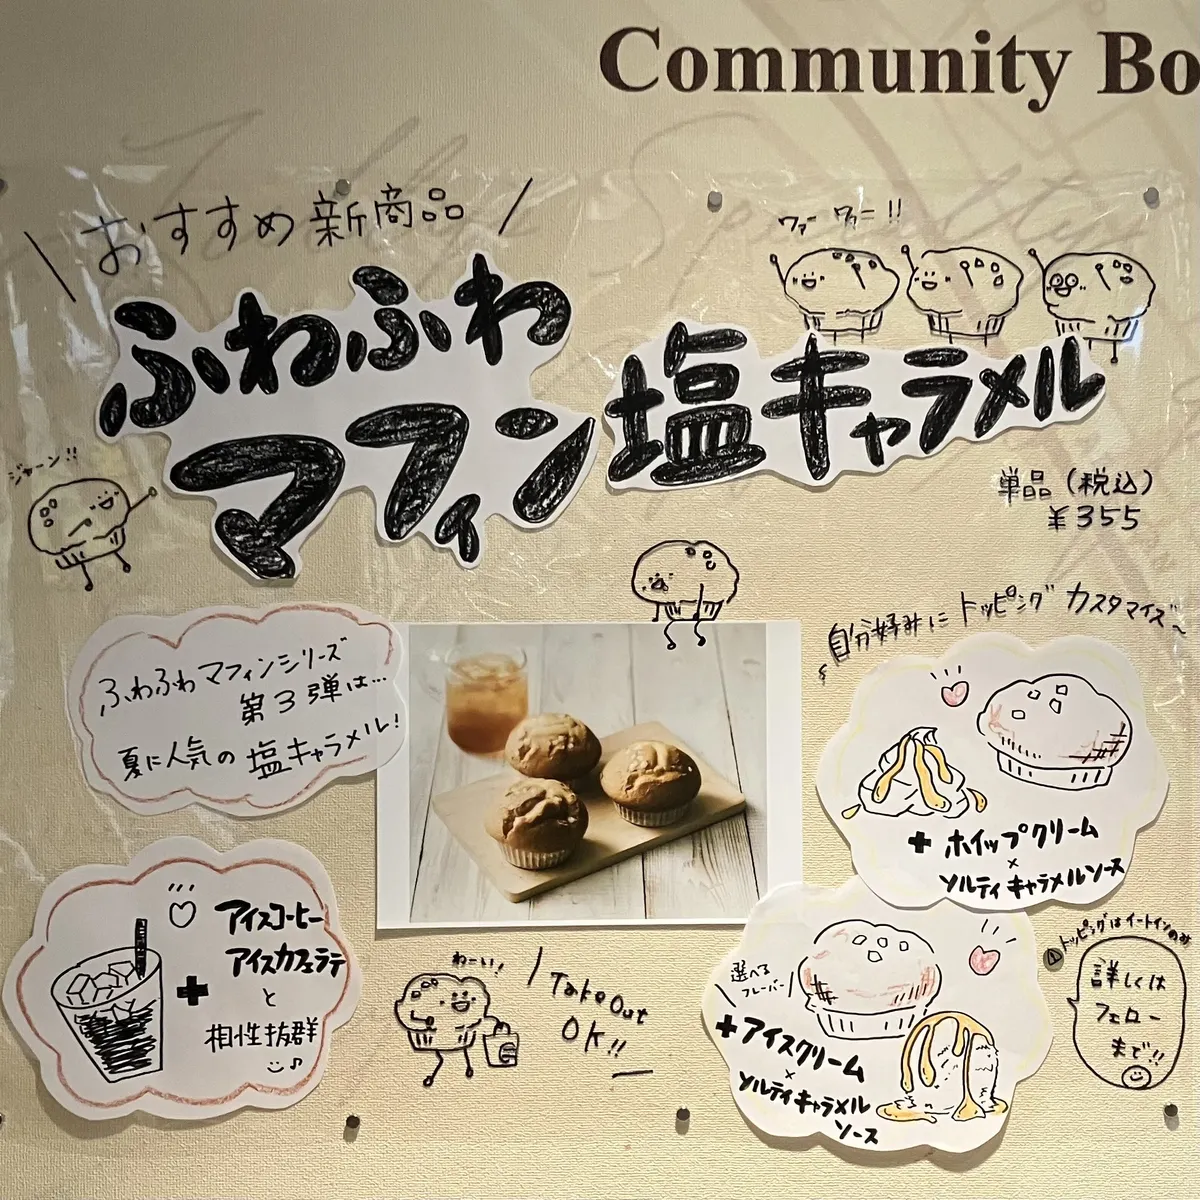 Community Bo
おすすめ新商品
ふわふわ
マフィン
塩キャラメル
ジャーン!!
単品(税込)
¥355
ふわふわマフィンシリーズ
第3弾は…
夏に人気の塩キャラメル!
自分好みにトッピングカスタマイズ~
+ホイップクリーム
×
ソルティキャラメルソース
アイスコーヒー
アイスカフェラテ
+
と
相性抜群
わーい!
Take Out
OK!!
選べる
フレーバー
+アイスクリーム
×
ソルティキャラメル
ソース
トッピングはイートインのみ
詳しくは
フェロー
まで!!